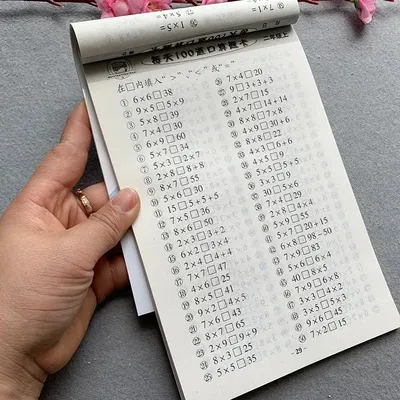 每天100道口算题卡
二年级上
在□内填入“>”、“<”或“=”
① 6×6□38
② 9×5□5×9
③ 5×8□39
④ 7×4□30
⑤ 6×9□60
⑥ 5×7□34
⑦ 5×3□2×7
⑧ 2×8□8+8
⑨ 8×7□55
⑩ 5×6□30
⑪ 15□5+5+5
⑫ 7×5□36
⑬ 8×6□50
⑭ 2×3□2+3
⑮ 6×2□3×4
⑯ 4+4□2×4
⑰ 7×7□47
⑱ 4×6□25
⑲ 8×5□41
⑳ 9×2□4×5
㉑ 7×6□43
㉒ 8×7□65
㉓ 2×9□9+9
㉔ 8×3□25
㉕ 5×5□35
㉖ 7×4□20
㉗ 9□3+3+3
㉘ 2×7□15
㉙ 4×7□14+14
㉚ 8×8□8+8
㉛ 4×9□30+6
㉜ 8×4□33
㉝ 3×3□6+6
㉞ 4×5□9
㉟ 5×5□5+5
㊱ 3×3□9
㊲ 30□5×6
㊳ 7×4□29
㊴ 2×8□4×4
㊵ 9×9□55
㊶ 5×7□20+15
㊷ 6×8□98-50
㊸ 7×9□83
㊹ 5×6□6×4
㊺ 40□8×5
㊻ 7×9□6×8
㊼ 3×5□5×3
㊽ 9×6□45
㊿ 7×2□15
-29-